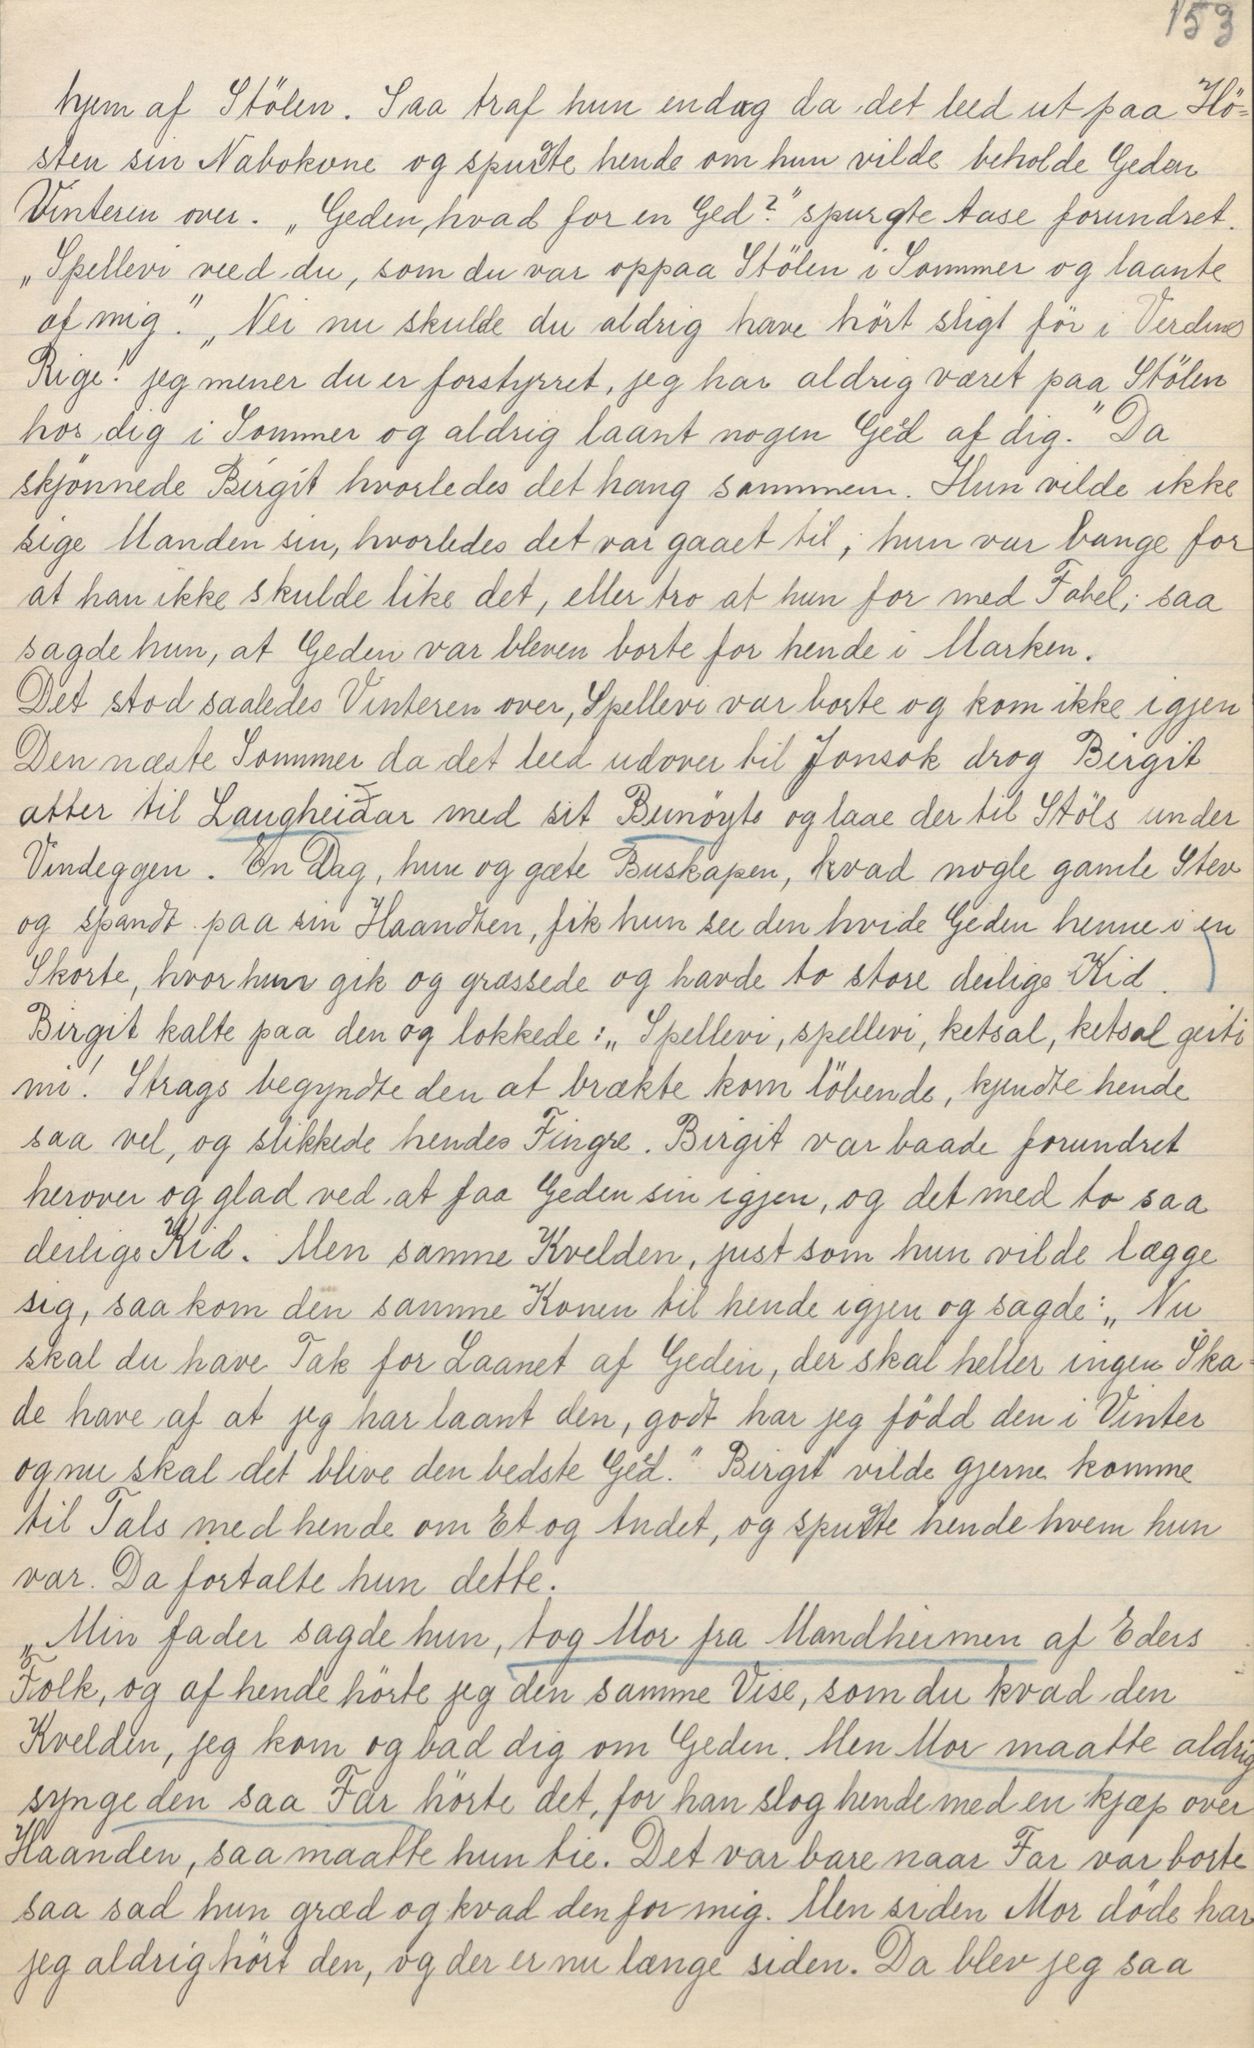 153
hjem af Stölen. Saa traf hun endag da det leed ut paa Hö=
sten sin Nabokone og spurgte hende om hun vilde beholde Geden
Vinteren over. „Geden, hvad for en Ged?" spurgte Aase forundret.
„Spellevi veed du, som du var oppaa Stölen i Sommer og laante
af mig". „Nei nu skulde du aldrig have hört sligt för i Verdens
Rige! jeg mener du er forstyrret, jeg har aldrig været paa Stölen
hos dig i Sommer og aldrig laant nogen Ged af dig." Da
skjönnede Birgit hvorledes det hang sammen. Hun vilde ikke
sige Manden sin, hvorledes det var gaaet til, hun var bange for
at han ikke skulde like det, eller tro at hun for med Fabel; saa
sagde hun, at Geden var bleven borte for hende i Marken.
Det stod saaledes Vinteren over, Spellevi var borte og kom ikke igjen
Den næste Sommer da det leed udover til Jonsok drog Birgit
atter til Laugheidar med sit Bunöyte og laae der til Stöls under
Vindeggen. En Dag, hun og gæte Buskapen, kvad nogle gamle Stev
og spandt paa sin Haandten, fik hun see den hvide Geden henne i en
Skorte, hvor hun gik og græssede og havde to store deilige Kid.
Birgit kalte paa den og lokkede: „Spellevi, spellevi, ketsal, ketsal geiti
mi! Strags begyndte den at brækte kom löbende, kjendte hende
saa vel, og slikkede hendes Fingre. Birgit var baade forundret
herover og glad ved at faa Geden sin igjen, og det med to saa
deilige Kid. Men samme Kvelden, just som hun vilde lægge
sig, saa kom den samme Konen til hende igjen og sagde: „Nu
skal du have Tak for Laanet af Geden, der skal heller ingen Ska=
de have af at jeg har laant den, godt har jeg född den i Vinter
og nu skal det blive den bedste Ged." Birgit vilde gjerne komme
til Tals med hende om Et og Andet, og spurgte hende hvem hun
var. Da fortalte hun dette.
„Min fader sagde hun, tog Mor fra Mandheimen af Eders
Folk, og af hende hörte jeg den samme Vise, som du kvad den
Kvelden, jeg kom og bad dig om Geden. Men Mor maatte aldrig
synge den saa Far hörte det, for han slog hende med en kjæp over
Haanden, saa maatte hun tie. Det var bare naar Far var borte
saa sad hun græd og kvad den for mig. Men siden Mor döde har
jeg aldrig hört den, og der er nu længe siden. Da blev jeg saa